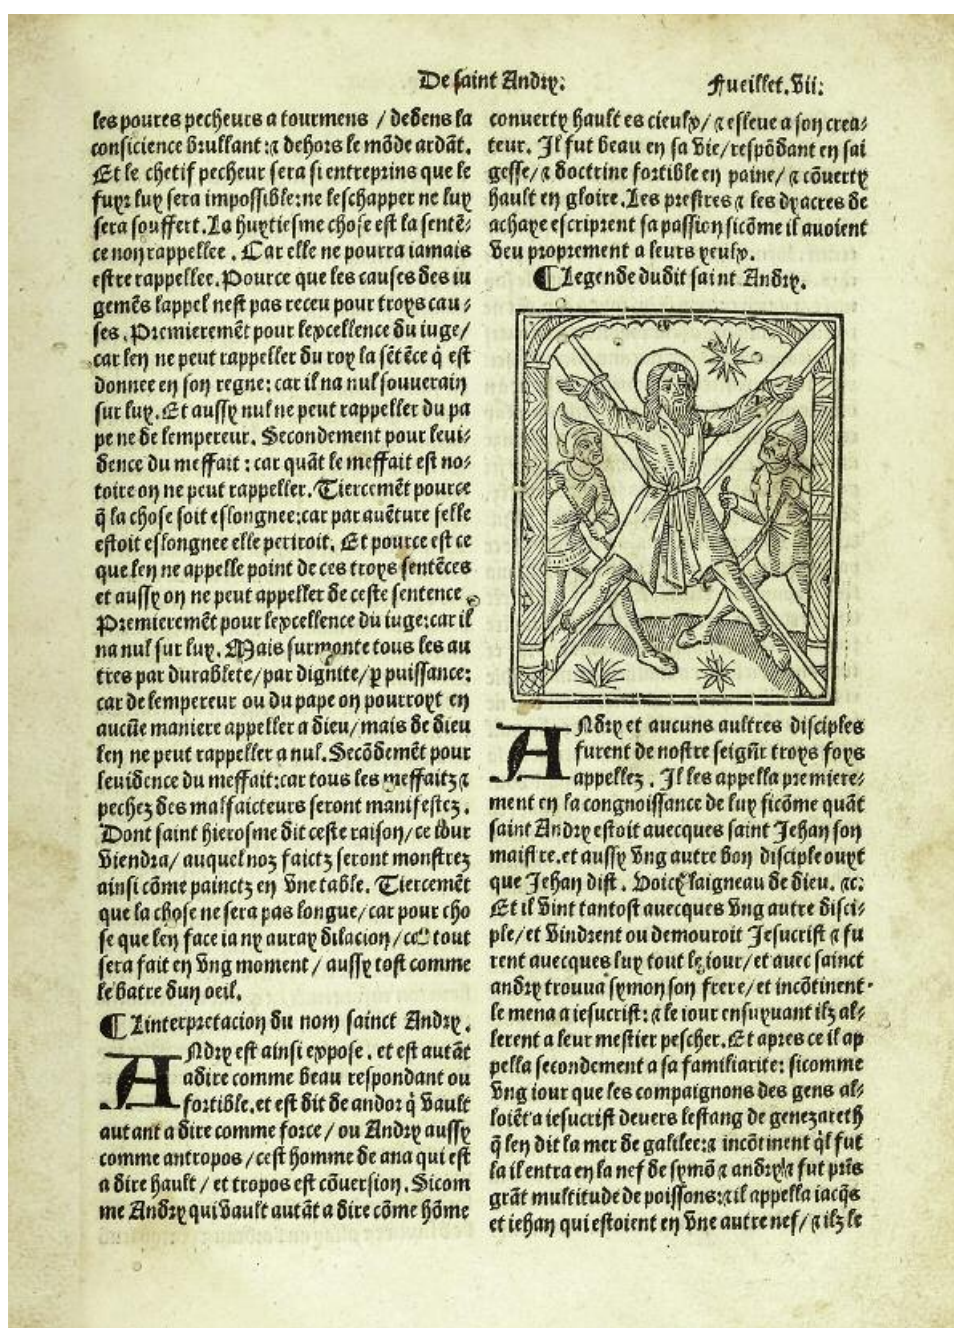 De saint Andry.
Fueillet. vii.
les poures pecheurs a tourmens / dedens la
consicience brullant: ⁊ dehors le mõde ardãt.
Et le chetif pecheur sera si entreprins que le
fuyr luy sera impossible: ne leschapper ne luy
sera souffert. La huytiesme chose est la sentẽ-
ce non rappellee . Car elle ne pourra iamais
estre rappellee. Pource que les causes des iu
gemẽs lappel nest pas receu pour troys cau-
ses . Premieremẽt pour lexcellence du iuge /
car len ne peut rappeller du roy la sẽtẽce q̃ est
donnee en son regne: car il na nul souuerain
sur luy. Et aussy nul ne peut rappeller du pa
pe ne de lempereur. Secondement pour leui-
dence du meffait : car quãt le meffait est no-
toire on ne peut rappeller. Tiercemẽt pource
q̃ la chose soit eslongnee: car par auẽture selle
estoit eslongnee elle periroit. Et pource est ce
que len ne appelle point de ces troys sentẽces
et aussy on ne peut appeller de ceste sentence
Premieremẽt pour lexcellence du iuge: car il
na nul sur luy. Mais surmonte tous les au
tres par durablete / par dignite / ꝑ puissance:
car de lempereur ou du pape on pourroyt en
aucũe maniere appeller a dieu / mais de dieu
len ne peut rappeller a nul. Secõdemẽt pour
leuidence du meffait: car tous les meffaitz ⁊
pechez des malfaicteurs seront manifestez .
Dont saint hierosme dit ceste raison / ce iour
viendra / auquel noz faictz seront monstrez
ainsi cõme painctz en vne table. Tiercemẽt
que la chose ne sera pas longue / car pour cho
se que len face ia ny auray dilacion / tout
sera fait en vng moment / aussy tost comme
le batre dun oeil.
¶ Linterpretacion du nom sainct Andry .
ANdry est ainsi expose . et est autãt
adire comme beau respondant ou
fortible. et est dit de andor q̃ vault
autant a dire comme force / ou Andry aussy
comme antropos / cest homme de ana qui est
a dire hault / et tropos est cõuersion. Sicom
me Andry qui vault autãt a dire cõme hõme
conuerty hault es cieulx / ⁊ esleue a son crea-
teur. Il fut beau en sa vie / respõdant en sai
gesse / ⁊ doctrine fortible en paine / ⁊ cõuerty
hault en gloire. Les prestres ⁊ les dyacres de
achaye escriprent sa passion sicõme il auoient
veu proprement a leurs yeulx.
¶ Legende dudit saint Andry.
ANdry et aucuns aultres disciples
furent de nostre seignr̃ troys foys
appellez . Il les appella premiere-
ment en la congnoissance de luy sicõme quãt
saint Andry estoit auecques saint Jehan son
maistre. et aussy vng autre bon disciple ouyt
que Jehan dist . Voicy laigneau de dieu. ⁊c:
Et il vint tantost auecques vng autre disci-
ple / et vindrent ou demouroit Jesucrist ⁊ fu
rent auecques luy tout le iour / et auec sainct
andry trouua symon son frere / et incõtinent
le mena a iesucrist: ⁊ le iour ensuyuant ilz al-
lerent a leur mestier pescher. Et apres ce il ap
pella secondement a sa familiarite: sicomme
vng iour que les compaignons des gens al-
loiẽt a iesucrist deuers lestang de genezareth
q̃ len dit la mer de galilee: ⁊ incõtinent q̃l fut
la il entra en la nef de symõ ⁊ andry ⁊ fut prĩs
grãt multitude de poissons: ⁊ il appella iacq̃s
et iehan qui estoient en vne autre nef / ⁊ ilz le